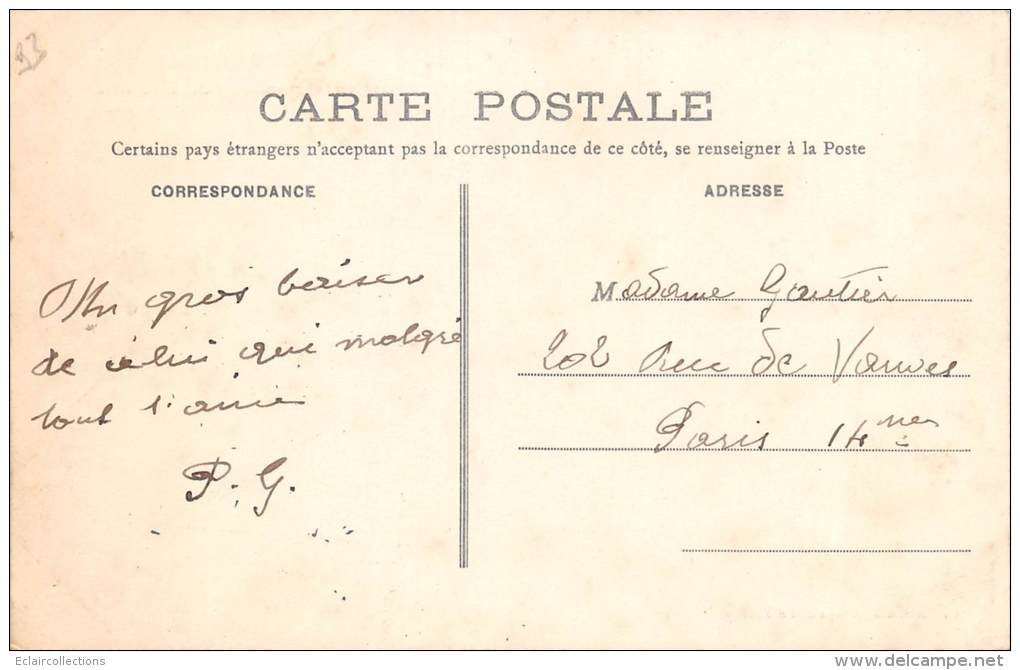 93
CARTE POSTALE
Certains pays étrangers n'acceptant pas la correspondance de ce côté, se renseigner à la Poste
CORRESPONDANCE
ADRESSE
Un gros baiser
de celui qui malgré
tout t'aime
P. G.
Madame Gautier
202 Rue de Vanves
Paris 14
Eclaircollections
www.delcampe.net